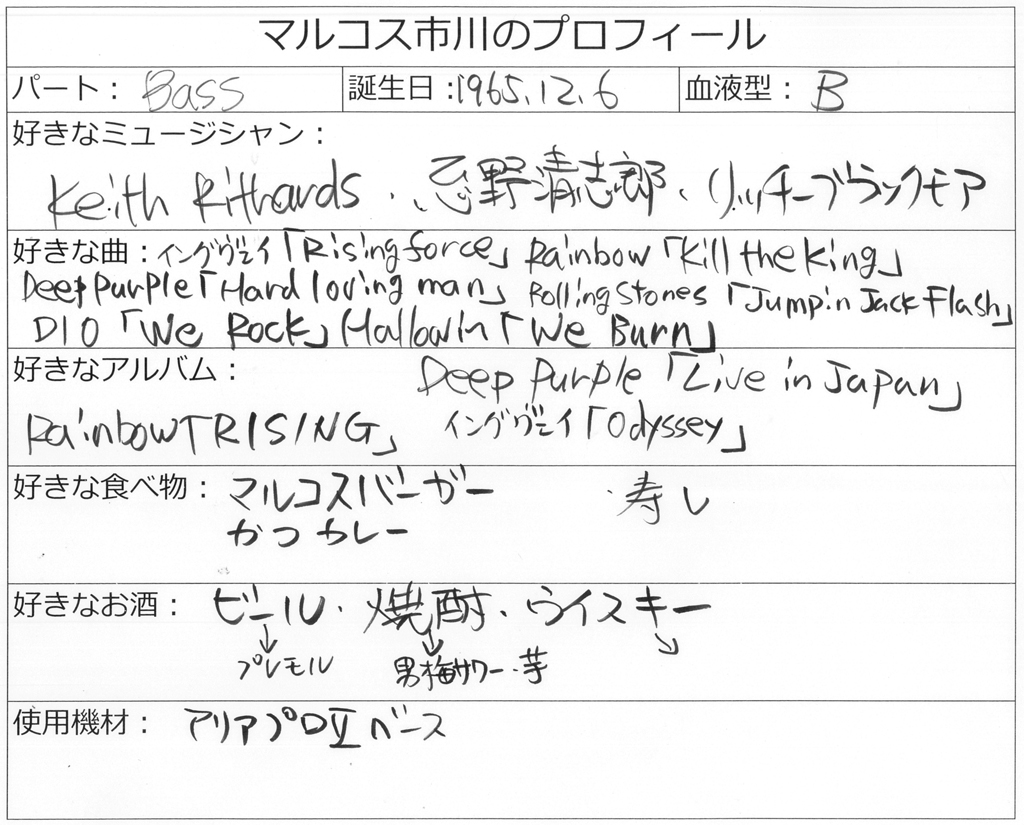 マルコス市川のプロフィール
パート： Bass 誕生日：1965.12.6 血液型： B
好きなミュージシャン：
Keith Rithards ・ 忌野清志郎、リッチーブラックモア
好きな曲：イングヴェイ「Rising force」 Rainbow「Kill the King」
Deep Purple「Hard loving man」 Rolling Stones 「Jumpin Jack Flash」
DIO「We Rock」 Hallowin「We Burn」
好きなアルバム： Deep Purple「Live in Japan」
Rainbow「RISING」 イングヴェイ「Odyssey」
好きな食べ物： マルコスバーガー ・寿し
かつカレー
好きなお酒： ビール・焼酎・ウイスキー
↓ ↓ ↘
プレモル 男梅サワー・芋
使用機材： アリアプロⅡ ベース